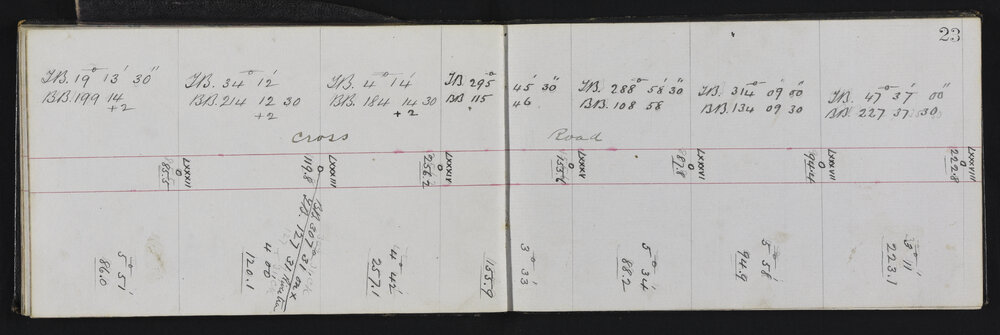 23
FB. 19° 13' 30"
BB. 199 14
+2
FB. 34° 12'
BB. 214 12 30
+2
FB. 4° 14'
BB. 184 14 30
+2
FB. 295° 45' 30"
BB 115 46
FB. 288° 58' 30
BB. 108 58
FB. 314° 09' 00"
BB. 134 09 30
FB. 47° 37' 00"
BB. 227 37 30
Cross Road
LXXXII
0
85.5
LXXXIII
0
119.8
LXXXIV
0
256.2
LXXXV
0
155.6
LXXXVI
0
87.8
LXXXVII
0
94.4
LXXXVIII
0
222.8
5° 51'
86.0
BB. 307 31
FB. 127 31
4 00
120.1
4° 42'
257.1
3° 33'
155.9
5° 34'
88.2
5° 58'
94.9
3° 11'
223.1